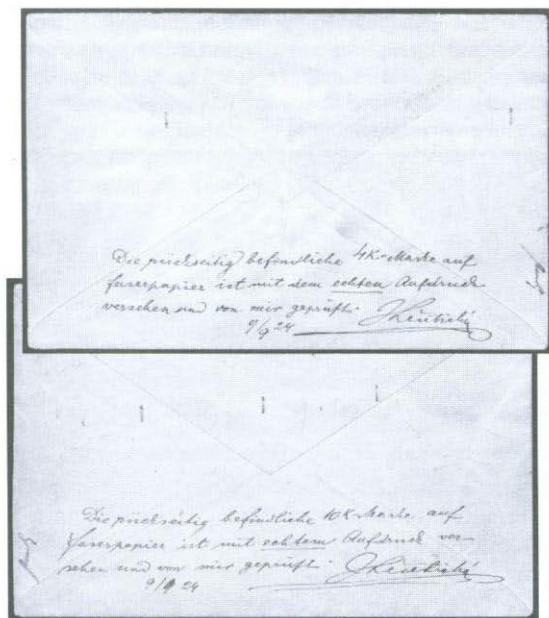 Die rückseitig befindliche 4K-Marke auf
faserpapier ist mit dem echten Aufdruck
versehen und von mir geprüft.
9/9 24
Die rückseitig befindliche 10K-Marke auf
faserpapier ist mit echtem Aufdruck ver-
sehen und von mir geprüft.
9/9 24